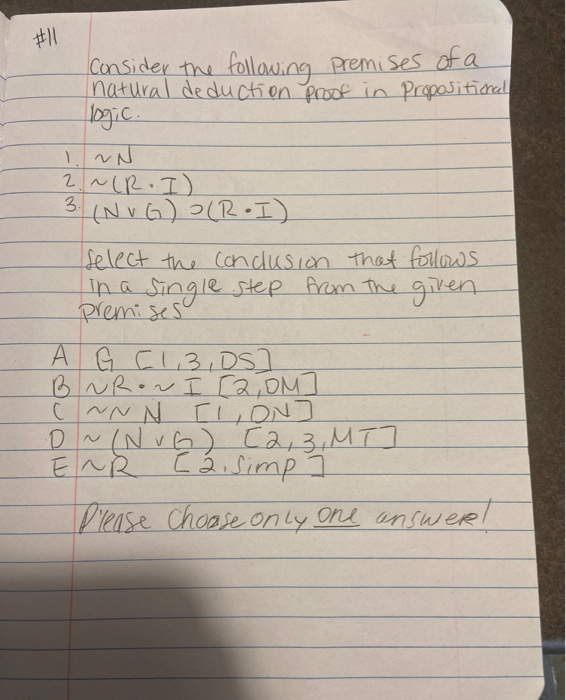 #11
Consider the following premises of a
natural deduction proof in Propositional
logic.
1. ~N
2. ~(R · I)
3. (N v G) ⊃ (R · I)
Select the conclusion that follows
in a single step from the given
premises
A G [1,3, DS]
B ~R · ~I [2, DM]
C ~~N [1, DN]
D ~(N v G) [2, 3, MT]
E ~R [2. simp]
Please choose only one answer!